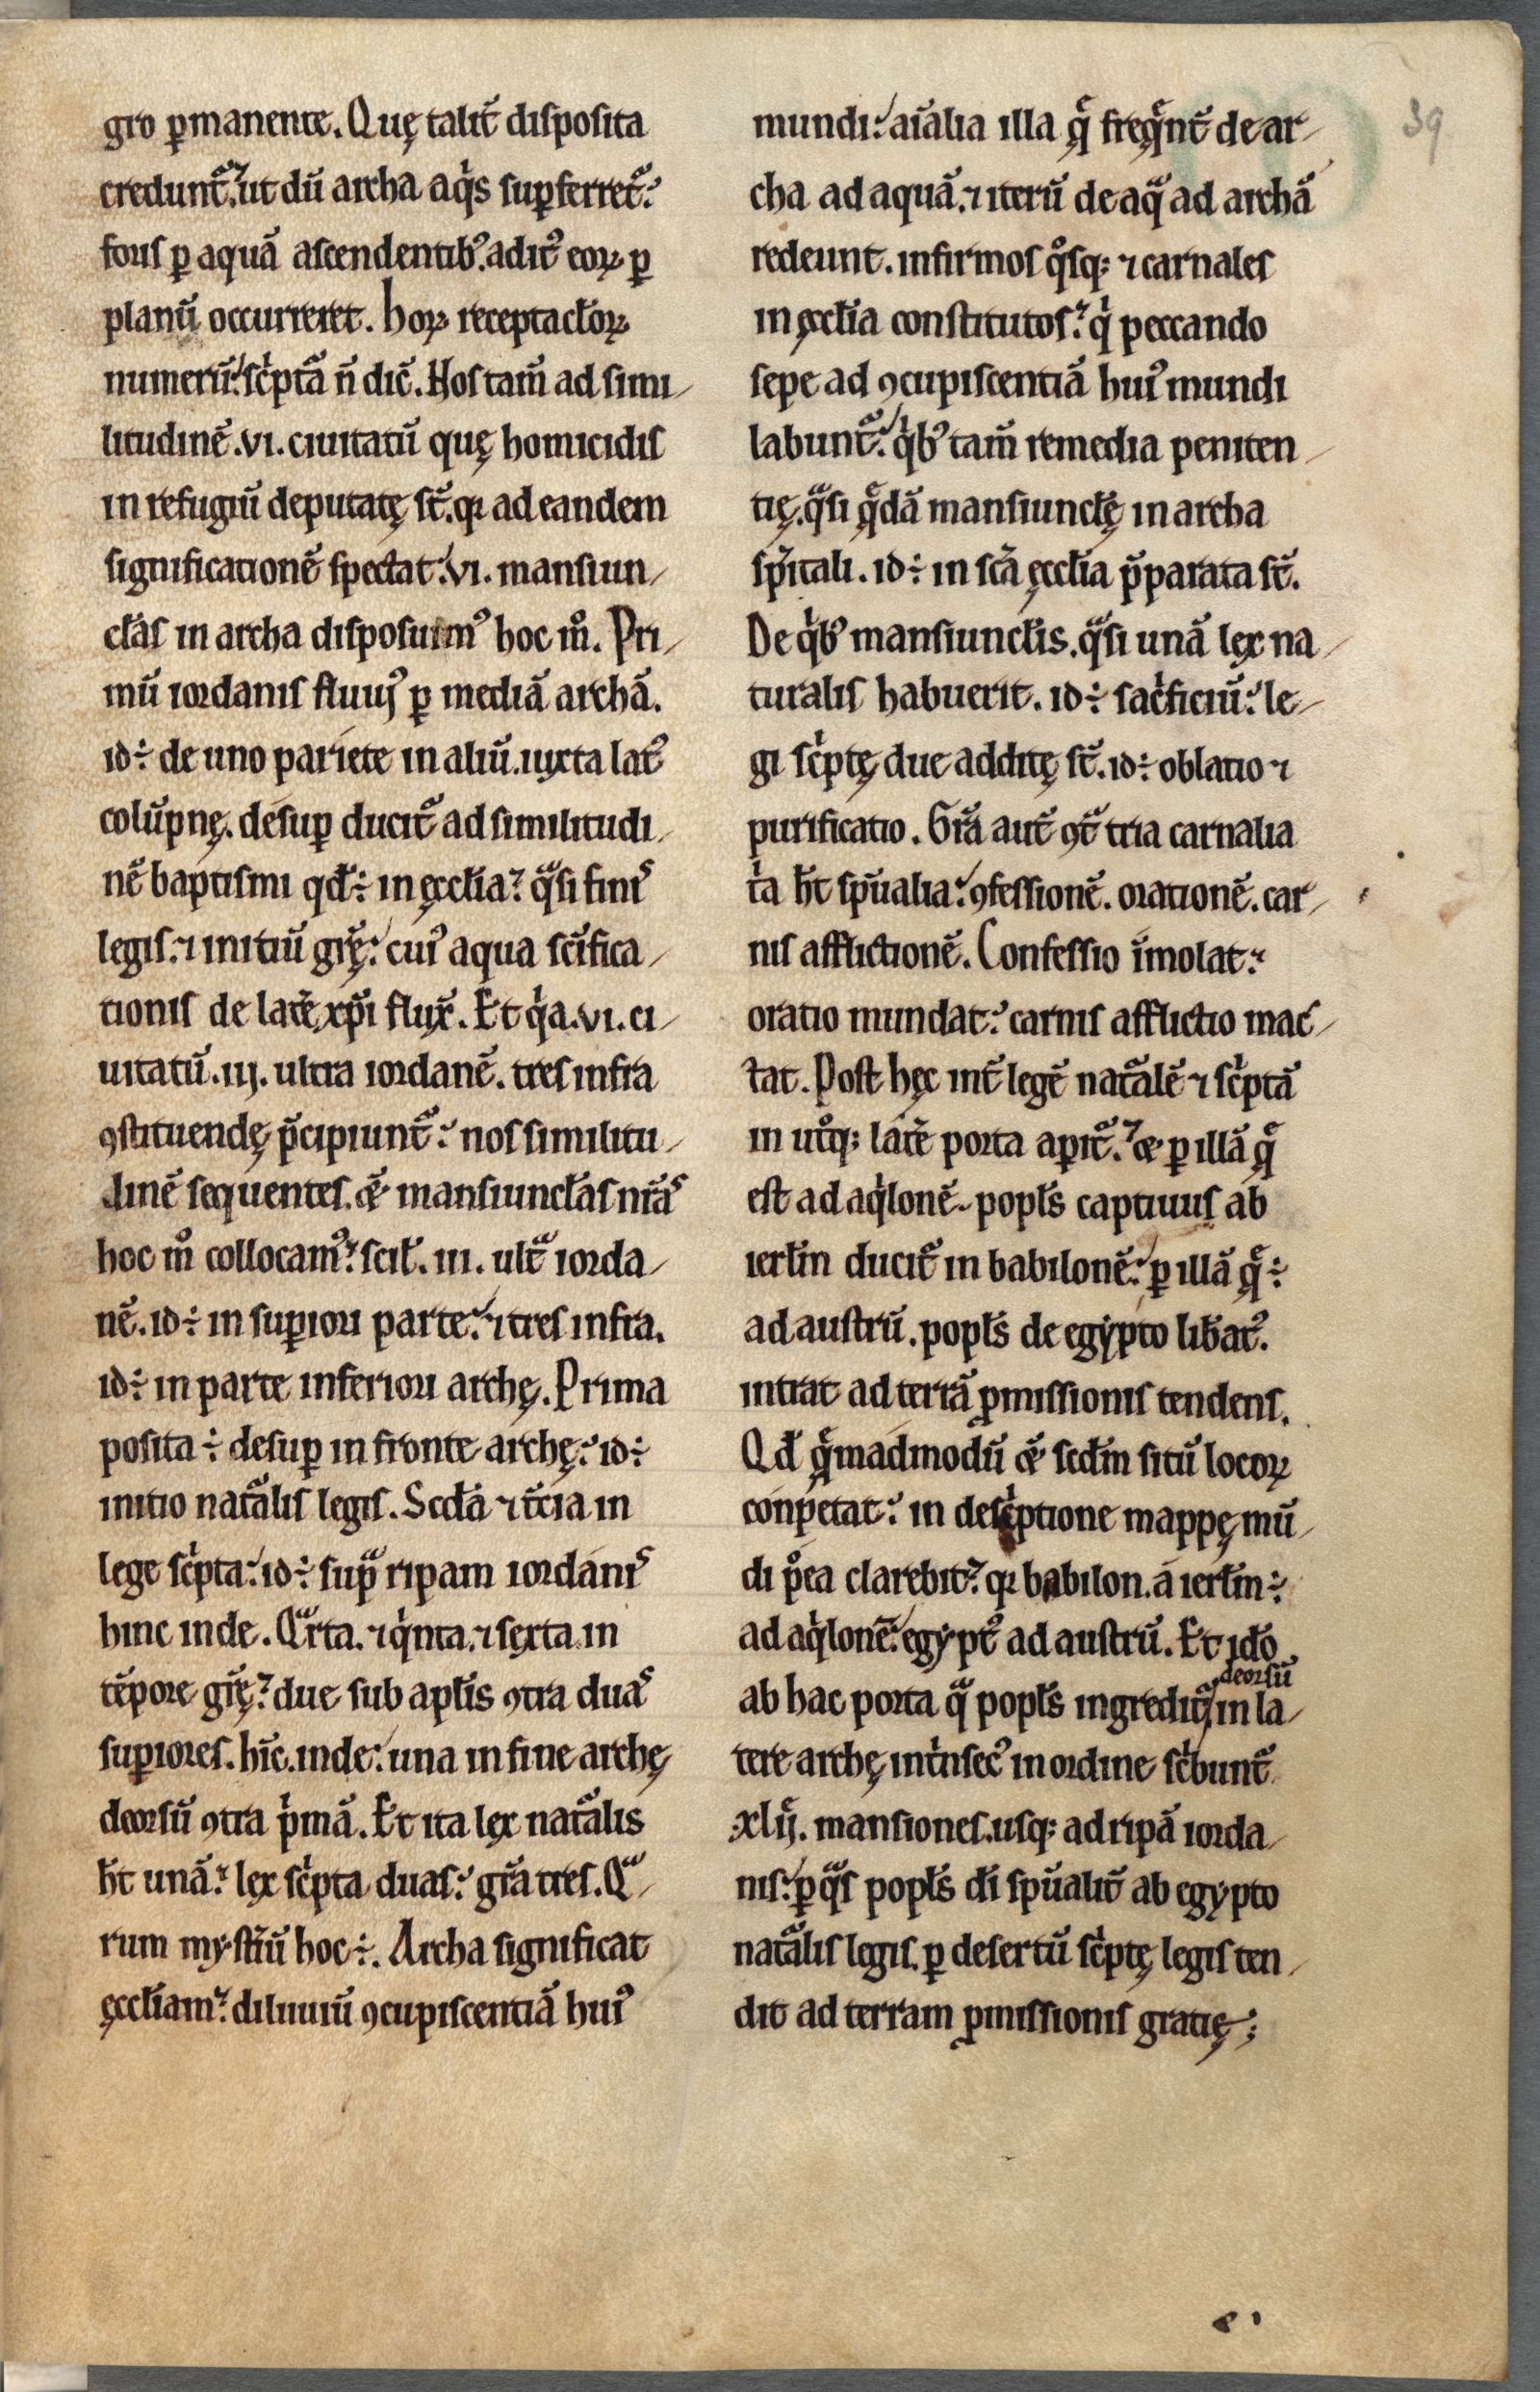 39
gro ꝑmanente. Quę talit̄ diſpoſita
credunt᷑. ut dū archa aqͥs ſuꝑferret᷑.
foris ꝑ aquā aſcendentibꝰ. aditꝰ eoꝝ ꝑ
planū occurreret. hoꝝ receptacl̄oꝝ
numerū. ſcͥptᷓa n̄ dic̄. Hoſ tam̄ ad ſimi
litudinē .vi. ciuitatū quę homicidiſ
in refugiū deputatę ſt̄. qꝛ ad eandem
ſignificationē ſpectat. vi. manſiun
cl̄as in archa diſpoſuimꝰ hoc mͦ. Pri
mū iordaniſ fluuiꝰ ꝑ mediā archā.
id ÷ de uno pariete in aliū. iuxta latꝰ
colūpnę. deſuꝑ ducit᷑ ad ſimilitudi
nē baptiſmi qđ ÷ in ęccl̄ia. qᷓſi finiſ
legiſ. ⁊ initiū gr̄ę. cuiꝰ aqua ſc̄ifica
tioniſ de latē xp̄i fluxͤ. Et qͥa .vi. ci
uitatū .iij. ultra iordanē. treſ infra
ꝯſtituendę p̄cipiunt᷑. noſ ſimilitu
dinē ſequenteſ. &̄ manſiuncl̄aſ nr̄aſ
hoc mͦ collocamꝰ. ſcil̄. iii. ultᷓ iorda
nē. id ÷ in ſuꝑiori parte. ⁊ treſ infra.
id ÷ in parte inferiori archę. Prima
poſita ÷ deſuꝑ in fronte archę. id ÷
initio natᷓaliſ legiſ. Scd̄a ⁊ t̄cia in
lege ſcͥpta. id ÷ ſupᷓ ripam iordaniſ
hinc inde. Qᷓrta. ⁊ qͥnta. ⁊ ſexta in
tēpore gr̄ę. due ſub apl̄is ꝯtra duaſ
ſuꝑioreſ. hīc. inde. una in fine archę
deorſū ꝯtra pͥmā. Et ita lex natᷓalis
ħt unā. lex ſcͥpta duaſ. gr̄a treſ. Qᷓ
rum myſt̄iū hoc ÷. Archa ſignificat
ęccl̄iam. diluuiū ꝯcupiſcentiā huiꝰ
mundi. aīalia illa qͤ freqͤnt̄ de ar
cha ad aquā. ⁊ iterū de aqᷓ ad archā
redeunt. infirmoſ qͦſqꝫ ⁊ carnaleſ
in ęccl̄ia conſtitutoſ. qͥ peccando
ſepe ad ꝯcupiſcentiā huiꝰ mundi
labunt᷑. qͥbꝰ tam̄ remedia peniten
tię. qᷓſi qͤdā manſiuncl̄ę in archa
ſpr̄itali. id ÷ in ſc̄a ęccl̄ia p̄parata ſt̄.
De qͥbꝰ manſiuncl̄is. qᷓſi unā lex na
turaliſ habuerit. id ÷ ſacͥficiū. le
gi ſcͥptę due additę ſt̄. id ÷ oblatio ⁊
purificatio. Gr̄a aut̄ ꝯtᷓ tria carnalia
tͥa ħt ſpūalia. ꝯfeſſionē. orationē. car
niſ afflictionē. Confeſſio īmolat.
oratio mundat. carniſ afflictio mac
tat. Poſt hęc int̄ legē natᷓalē ⁊ ſcͥptā
in utͦqꝫ latē porta aꝑit᷑. & ꝑ illā qͤ
eſt ad aqͥlonē. popl̄s captiuuſ ab
ierl̄m ducit᷑ in babilonē. ꝑ illā qͤ ÷
ad auſtrū. popl̄s de egypto lib̄atꝰ.
intrat ad terrā ꝓmiſſioniſ tendenſ.
Qđ qͤmadmodū &̄ ſcd̄m ſitū locoꝝ
conpetat. in deſcͥptione mappę mū
di pͦea clarebit. qꝛ babilon. a ierl̄m ÷
ad aqͥlonē. egyptꝰ ad auſtrū. Et id̄o
ab hac porta qᷓ popl̄s ingredit᷑ deorſū in la
tere archę intͥnſecꝰ in ordine ſcͥbunt᷑
.xlij. manſioneſ. uſqꝫ ad ripā iorda
niſ. ꝑ qᷓs popl̄s dī ſpūalit̄ ab egypto
natᷓaliſ legiſ. ꝑ deſertū ſcͥptę legiſ ten
dit ad terram ꝓmiſſioniſ gratię;